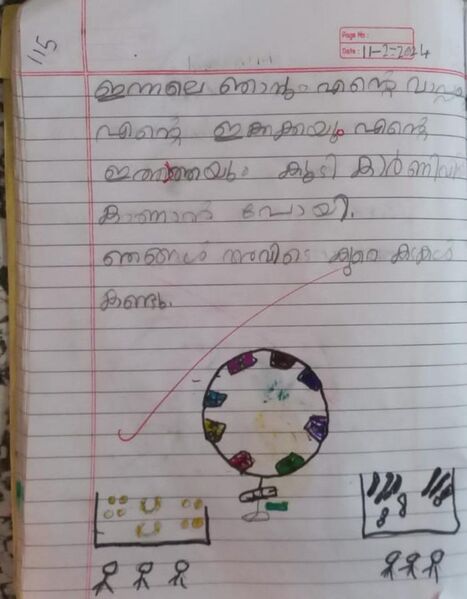 115
Page No :
Date : 11-2-2024
ഇന്നലെ ഞാനും എന്റെ വാപ്പ
എന്റെ ഇക്കക്കയും എന്റെ
ഇത്തത്തയും കൂടി കാർണിവൽ
കാണാൻ പോയി.
ഞങ്ങൾ അവിടെ കുറെ കടകൾ
കണ്ടു.